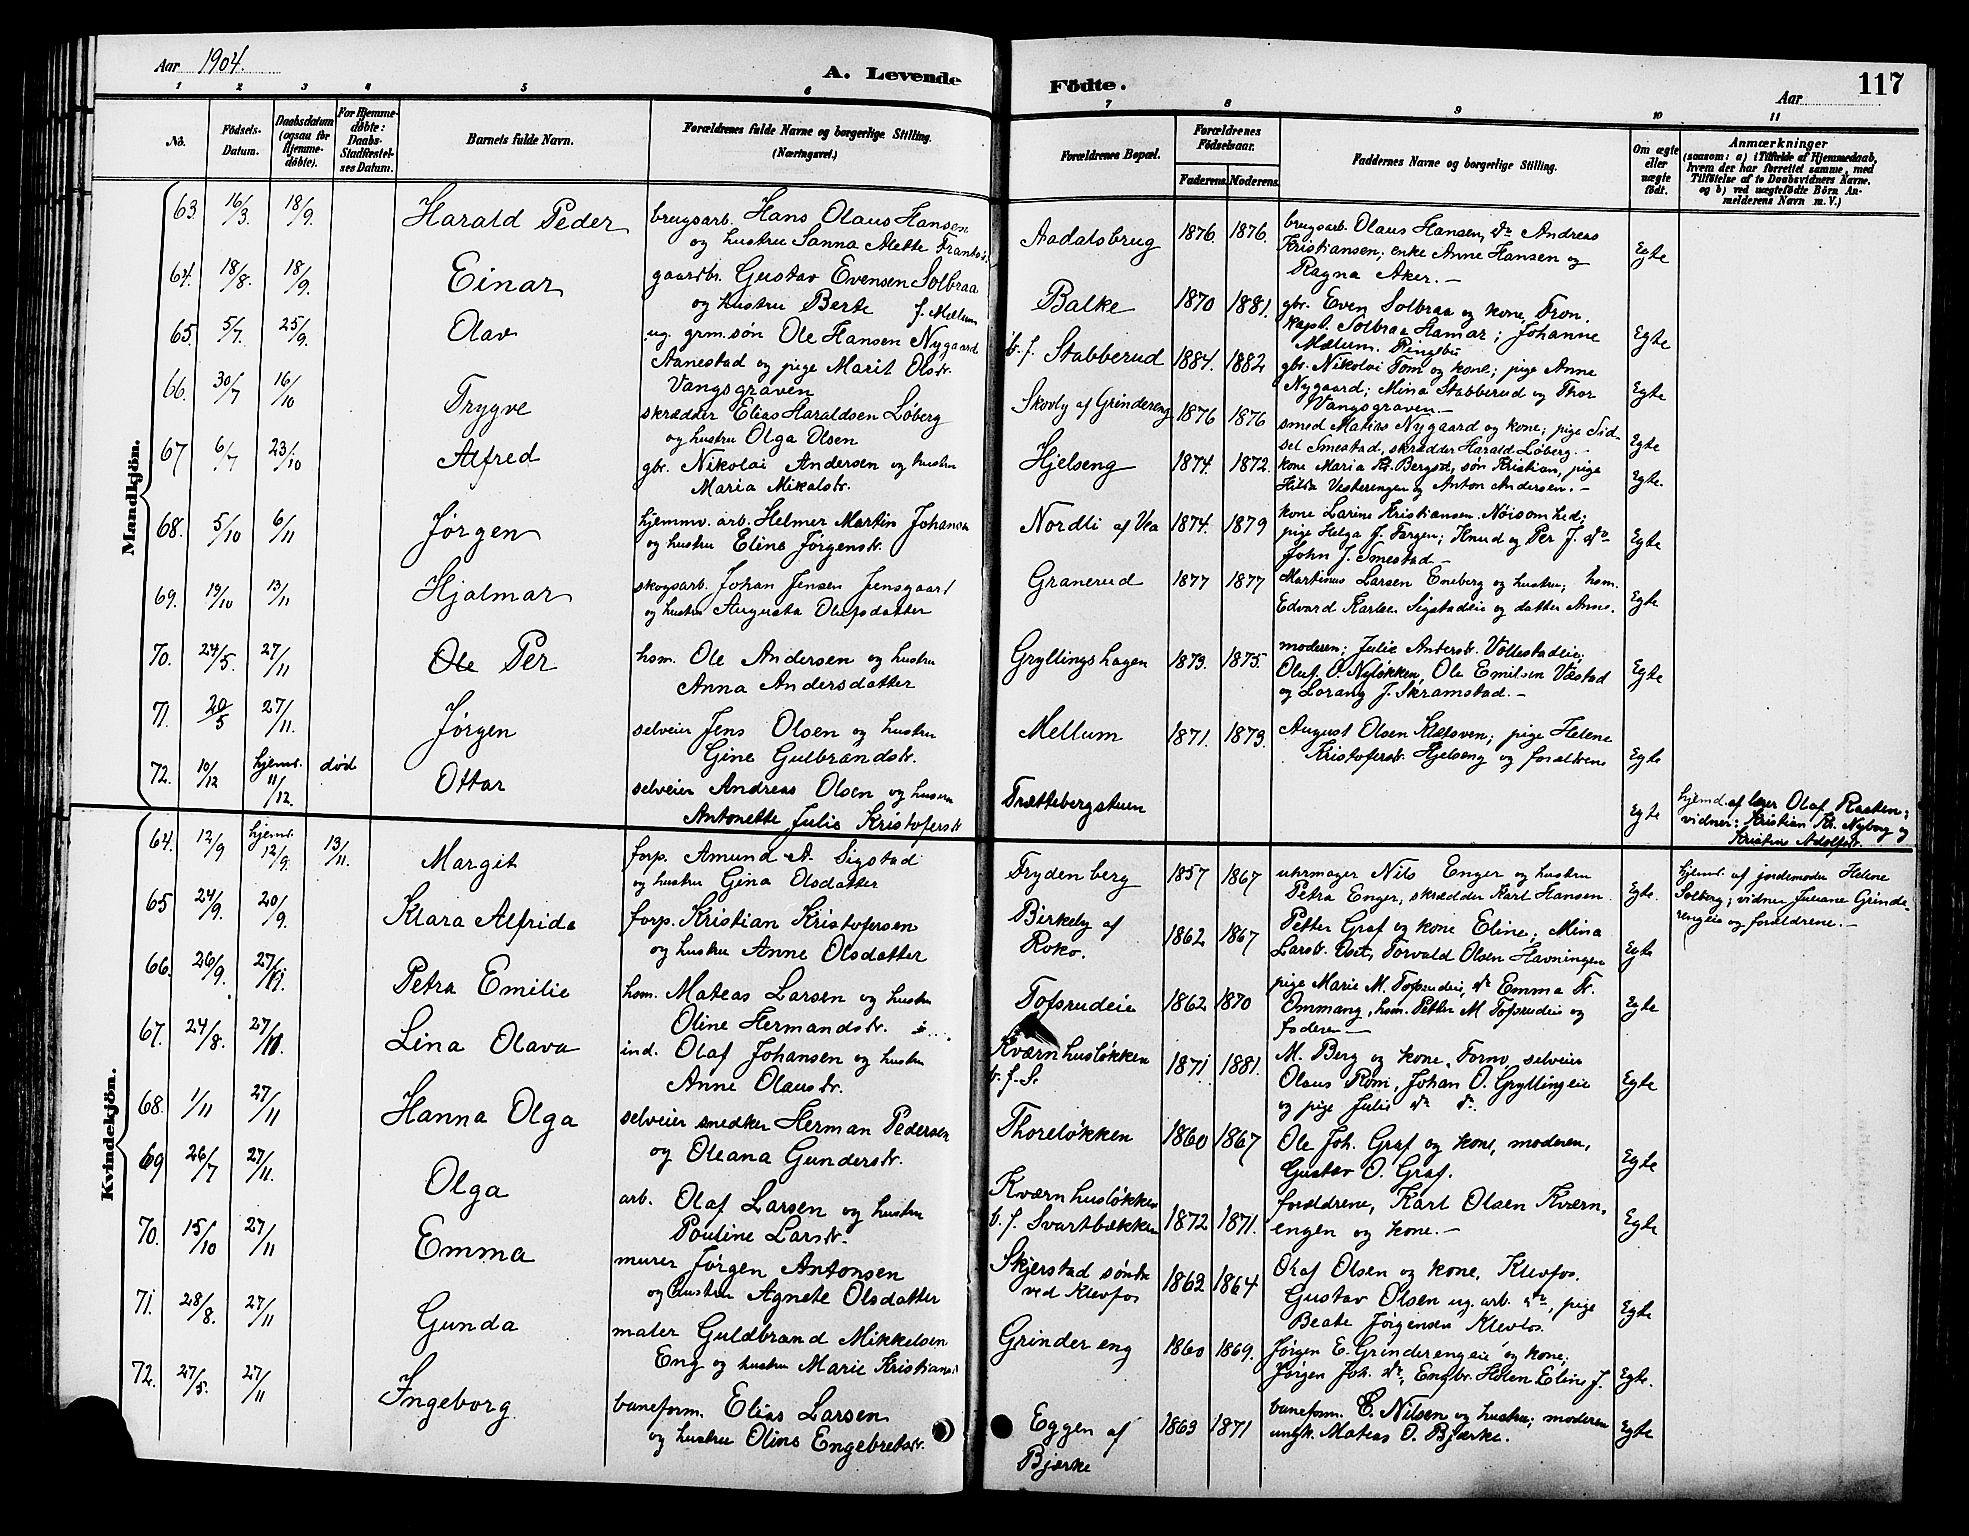 Aar 1904.
A. Levende Födte.
117
Aar
1 2 3 4 5 6 7 8 9 10 11
No.
Födsels-Datum.
Daabsdatum (ogsaa for Hjemme-döbte).
For Hjemme-döbte: Daabs-Stadfæstelses Datum.
Barnets fulde Navn.
Forældrenes fulde Navne og borgerlige Stilling. (Næringsvei.)
Forældrenes Bopæl.
Forældrenes Födselsaar.
Faderens. Moderens.
Faddernes Navne og borgerlige Stilling.
Om ægte eller uægte födt.
Anmærkninger
(saasom: a) i Tilfælde af Hjemmedaab, hvem der har forrettet samme, med Tilföielse af to Daabsvidners Navne, og b) ved uægtefödte Börn Anmelderens Navn m. V.)
Mandkjön.
63 16/3. 18/9. Harald Peder brugsarb. Hans Olaus Hansen
og hustru Sanna Mette
Aadalsbrug 1876. 1876. brugsarb. Olaus Hansen, do Andreas
Kristiansen; enke Anne Hansen og
Ragna Aker. — Egte
64. 18/8. 18/9. Einar gaardbr. Gustav Evensen Solbraa
og hustru Berte f. Mellum
Balke 1870 1881. gbr. Even Solbraa og kone, Fron.
kapt. Solbraa Hamar; Johanne
Mælum. Pingebu Egte
65. 5/7. 25/9. Olav ug. grm.søn Ole Hansen Nygaard
Aanestad og pige Marit Olsdr.
Vangsgraven
b. f. Stabberud 1884. 1882 gbr. Nikolai Tom og kone; pige Anne
Nygaard; Mina Stabberud og Thor
Vangsgraven. — Egte
66. 30/7 16/10 Trygve skrædder Elias Haraldsen Løberg
og hustru Olga Olsen
Skovly af Grindereng 1876 1876 smed Matias Nygaard og kone; pige Sid-
sel Smestad, skrædder Harald Løberg. — Egte
67 6/7 23/10 Alfred gbr. Nikolai Andersen og hustru
Maria Mikalsdr.
Hjelseng 1874. 1872. kone Maria Kr. Bergsd, søn Kristian, pige
Hilda Vesterengen og Anton Andersen. — Egte.
68. 5/10 6/11 Jørgen hjemmv. arb. Helmer Martin Johansen
og hustru Eline Jørgensdr.
Nordli af Vea 1874. 1879 kone Larine Kristiansen Nöisomhed;
pige Helga J. Fargen; Knud og Per J. do
John J. Smestad — Egte
69. 19/10 13/11 Hjalmar skogsarb. Johan Jensen Jensgaard
og hustru Augusta Olufsdatter
Granerud 1877 1877 Martinus Larsen Eneberg og hustru; hsm.
Edvard Karlsen Sigstadeie og datter Anne. Egte
70. 24/5. 27/11 Ole Per hsm. Ole Andersen og hustru
Anna Andersdatter
Gryllingshagen 1873. 1875. moderen; Julie Andersdr. Vollestadeie;
Oluf O. Nyløkken, Ole Emilsen Væstad
og Lorang J. Skramstad. — Egte
71. 20/5 27/11. Jørgen selveier Jens Olsen og hustru
Gine Gulbrandsdr.
Mellum 1871. 1873. August Olsen Kletsven; pige Helene
Kristofersdr. Hjelseng og forældrene Egte
72. 10/12 hjemd. 11/12. død Ottar selveier Andreas Olsen og hustru
Antonette Julie Kristofersdr
Trættebergstuen Egte hjemd. af lærer Olaf Rasten;
vidner: Kristian Kr. Nyborg og
Kristine Adolfsdr.
Kvindekjön.
64. 12/9 hjemd. 12/9. 13/11. Margit forp. Amund A. Sigstad
og hustru Gina Olsdatter
Frydenberg 1857 1867 uhrmager Nils Enger og hustru
Petra Enger, skrædder Karl Hansen. Egte. hjemd. af jordemoder Helene
Solberg; vidner Juliane Grinde-
rengeie og forældrene. —
65 24/9. 20/9. Klara Alfrida forp. Kristian Kristofersen
og hustru Anne Olsdatter
Birkely af
Roko. 1862 1867 Petter Graf og kone Eline; Mina
Larsdr. Tveit, Torvald Olsen Havningen Egte
66. 26/9. 27/11. Petra Emilie hsm. Mateas Larsen og hustru
Oline Hermandsdr.
Tofsrudeie 1862 1870 pige Marie M. Tofsrudeie, do Emma Kr.
Ommang, hsm. Petter M Tofsrudeie og
faderen — Egte
67. 24/8. 27/11. Lina Olava ind. Olaf Johansen og hustru
Anne Olausdr.
Kværnhusløkken
b. f. S. 1871. 1881. M. Berg og kone, Fornv, selveier
Olaus Rom, Johan O. Gryllingeie
og pige Julie do do. Egte
68. 1/11 27/11 Hanna Olga selveier snedker Herman Pedersen
og Oleana Gundersdr.
Thoreløkken 1860 1867 Ole Joh. Graf og kone, moderen,
Gustav O. Graf. Egte
69 26/7 27/11. Olga arb. Olaf Larsen og hustru
Pouline Larsdr.
Kværnhusløkken
b. f. Svartbækken 1872 1871. forældrene, Karl Olsen Kværn-
engen og kone. — Egte
70. 15/10 27/11 Emma murer Jørgen Antonsen
og hustru Agnete Olsdatter
Skjerstad søndre
ved Klevfos 1862 1864 Olaf Olsen og kone, Klevfos.
Gustav Olsen ug. arb. do, pige
Beate Jørgensen Klevfos. Egte
71. 28/8. 27/11 Gunda maler Guldbrand Mikkelsen
Eng og hustru Marie Kristiansdr
Grindereng 1860 1869. Jørgen E. Grinderengeie og kone;
Jørgen Joh. do, Engbr. Holen Eline J. Egte.
72. 27/5. 27/11 Ingeborg. baneform. Elias Larsen
og hustru Oline Engebretsdr.
Eggen af
Bjerke 1863 1871 baneform. C. Nilsen og hustru; moderen
ungk. Mateas O. Bjerke. Egte